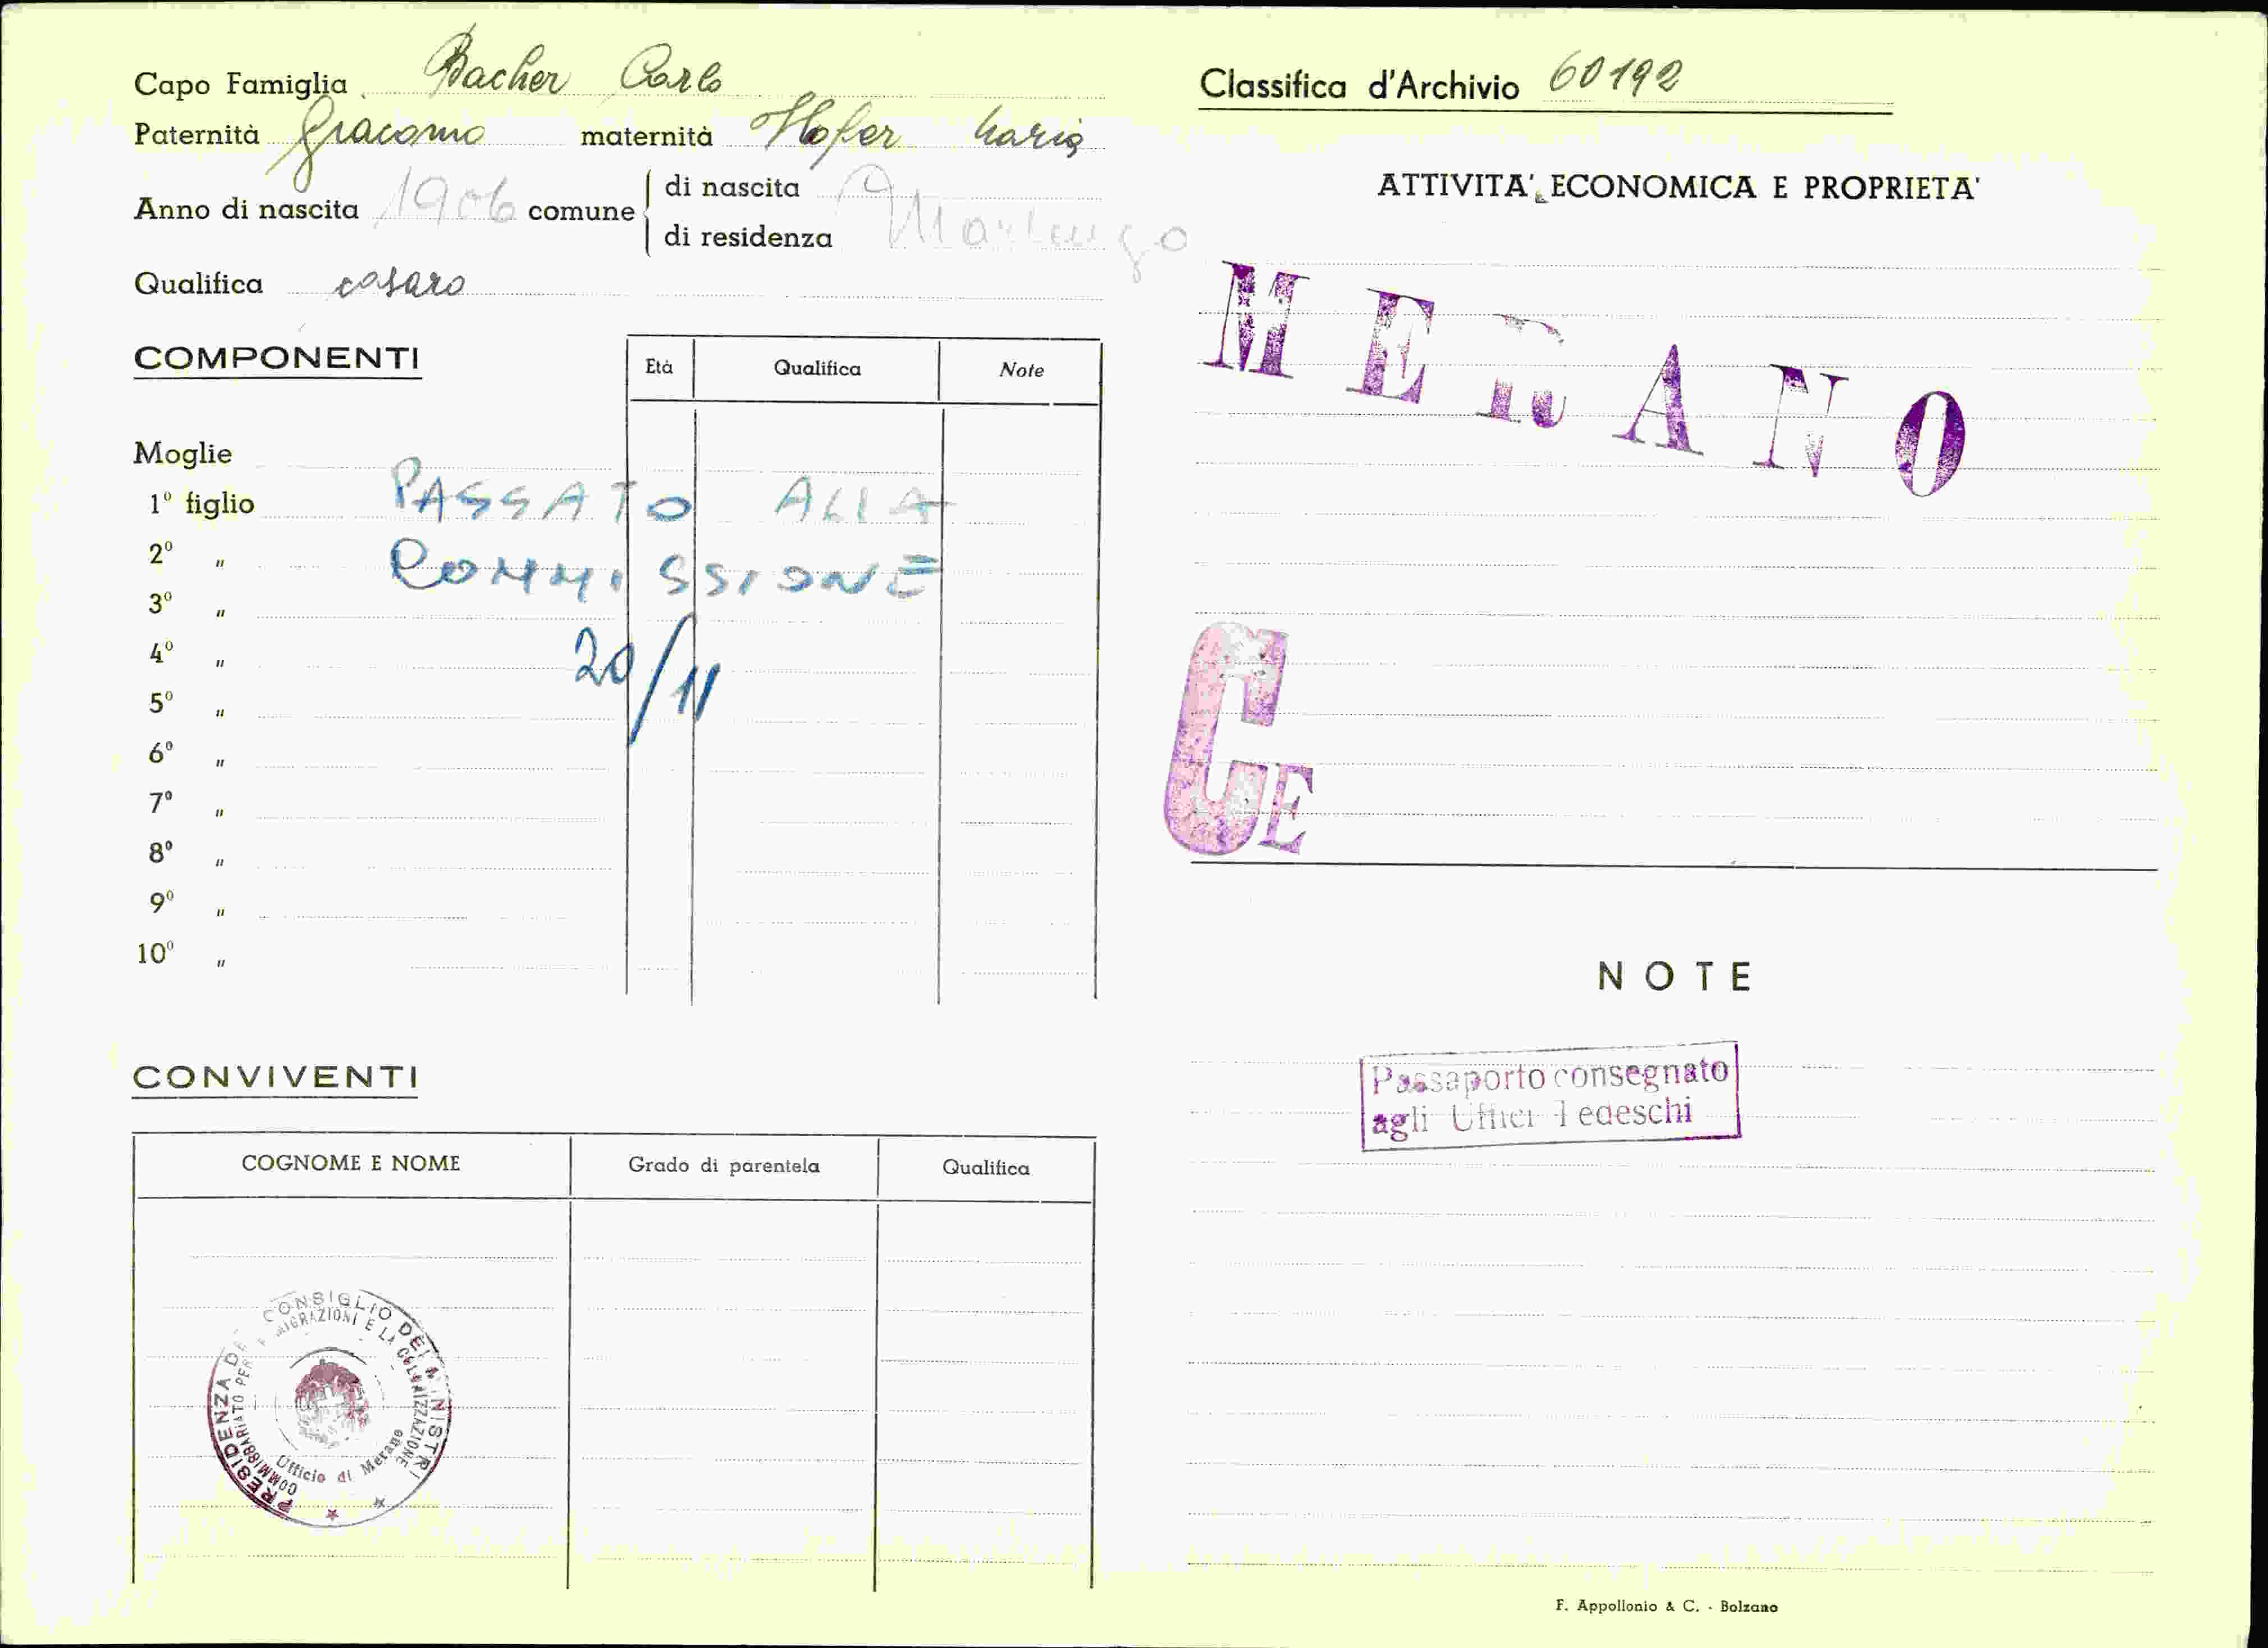 Capo Famiglia Bacher Carlo
Paternità Giacomo maternità Hofer Maria
Anno di nascita 1906 comune
di nascita
di residenza Marlengo
Qualifica casaro
COMPONENTI
Età Qualifica Note
Moglie
1º figlio PASSATO ALLA
2º " COMMISSIONE
3º "
4º " 20/11
5º "
6º "
7º "
8º "
9º "
10º "
CONVIVENTI
COGNOME E NOME Grado di parentela Qualifica
PRESIDENZA DEL CONSIGLIO DEI MINISTRI
COMMISSARIATO PER LE MIGRAZIONI E LA COLONIZZAZIONE
Ufficio di Merano
Classifica d'Archivio 60192
ATTIVITA' ECONOMICA E PROPRIETA'
MERANO
CE
NOTE
Passaporto consegnato
agli Uffici Tedeschi
F. Appollonio & C. - Bolzano